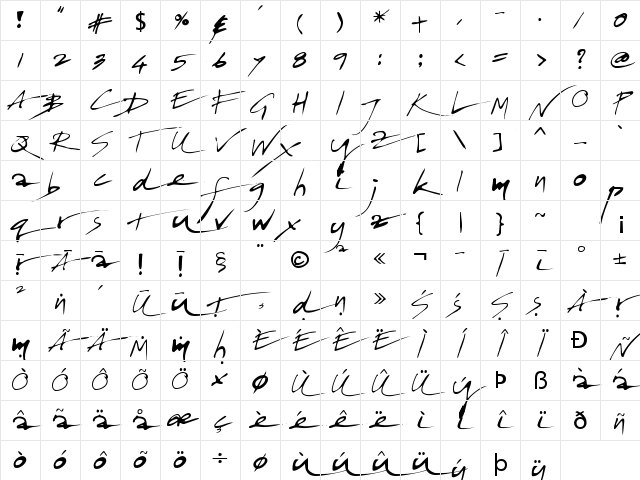 ! " # $ % & ' ( ) * + , - . / 0
1 2 3 4 5 6 7 8 9 : ; < = > ? @
A B C D E F G H I J K L M N O P
Q R S T U V W X Y Z [ \ ] ^ _ `
a b c d e f g h i j k l m n o p
q r s t u v w x y z { | } ~ ¡
ṝ Ā ā ! § ¨ © ª « ¬ - Ī ī ° ±
² ṅ ´ Ū ū ṭ ¸ ḍ ṇ » Ś ś Ṣ ṣ À ṛ
ṃ Ã Ä Ṁ ṁ ḥ È É Ê Ë Ì Í Î Ï Ð Ñ
Ò Ó Ô Õ Ö × ø Ù Ú Û Ü ý Þ ß à á
â ã ä å æ ç è é ê ë ì í î ï ð ñ
ò ó ô õ ö ÷ ø ù ú û ü ý þ ÿ